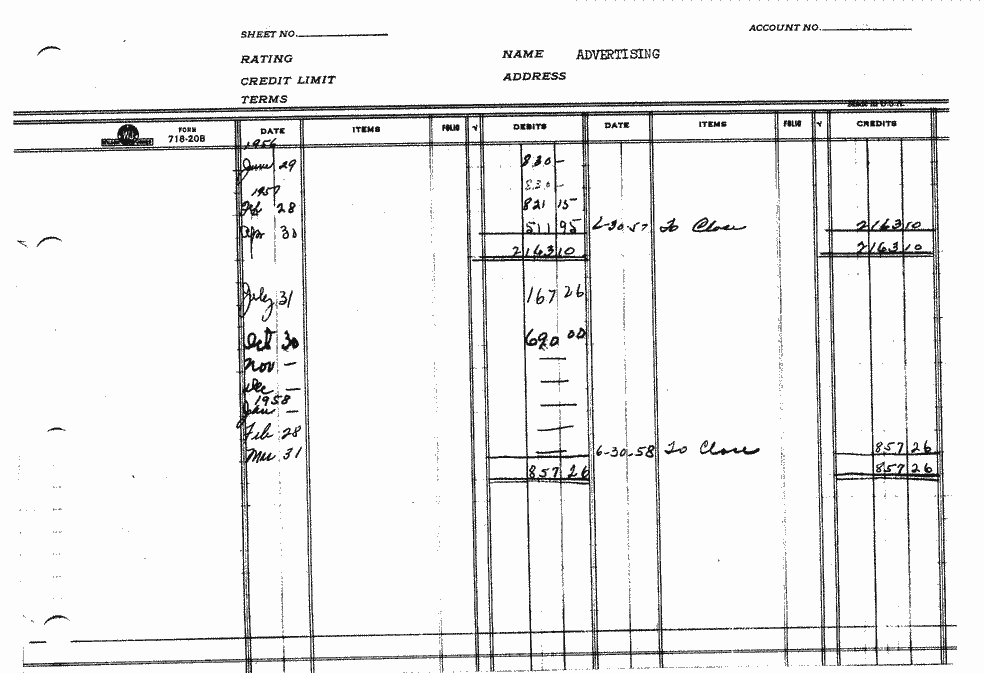 SHEET NO. ACCOUNT NO.
RATING NAME ADVERTISING
CREDIT LIMIT ADDRESS
TERMS
MADE IN U.S.A.
FORM 718-20B DATE ITEMS FOLIO √ DEBITS DATE ITEMS FOLIO √ CREDITS
1956
June 29 830 -
1957 830 -
Feb 28 821 15
Apr 30 511 95 6-30-57 To Close 2163 10
2163 10 2163 10
July 31 167 26
Oct 30 690 00
Nov — —
Dec — —
1958
Jan — —
Feb 28 —
Mar 31 — 6-30-58 To Close 857 26
857 26 857 26